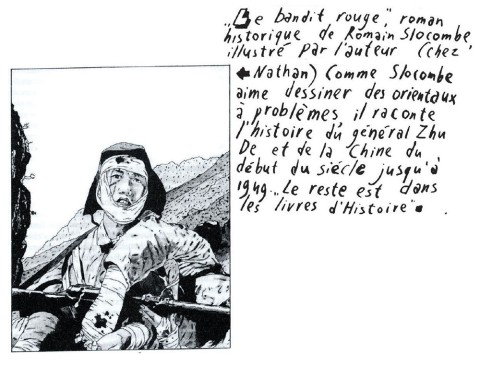 „Le bandit rouge", roman
historique de Romain Slocombe,
illustré par l'auteur (chez
Nathan) Comme Slocombe
aime dessiner des orientaux
à problèmes, il raconte
l'histoire du général Zhu
De et de la Chine du
début du siècle jusqu'à
1949. „Le reste est dans
les livres d'Histoire".